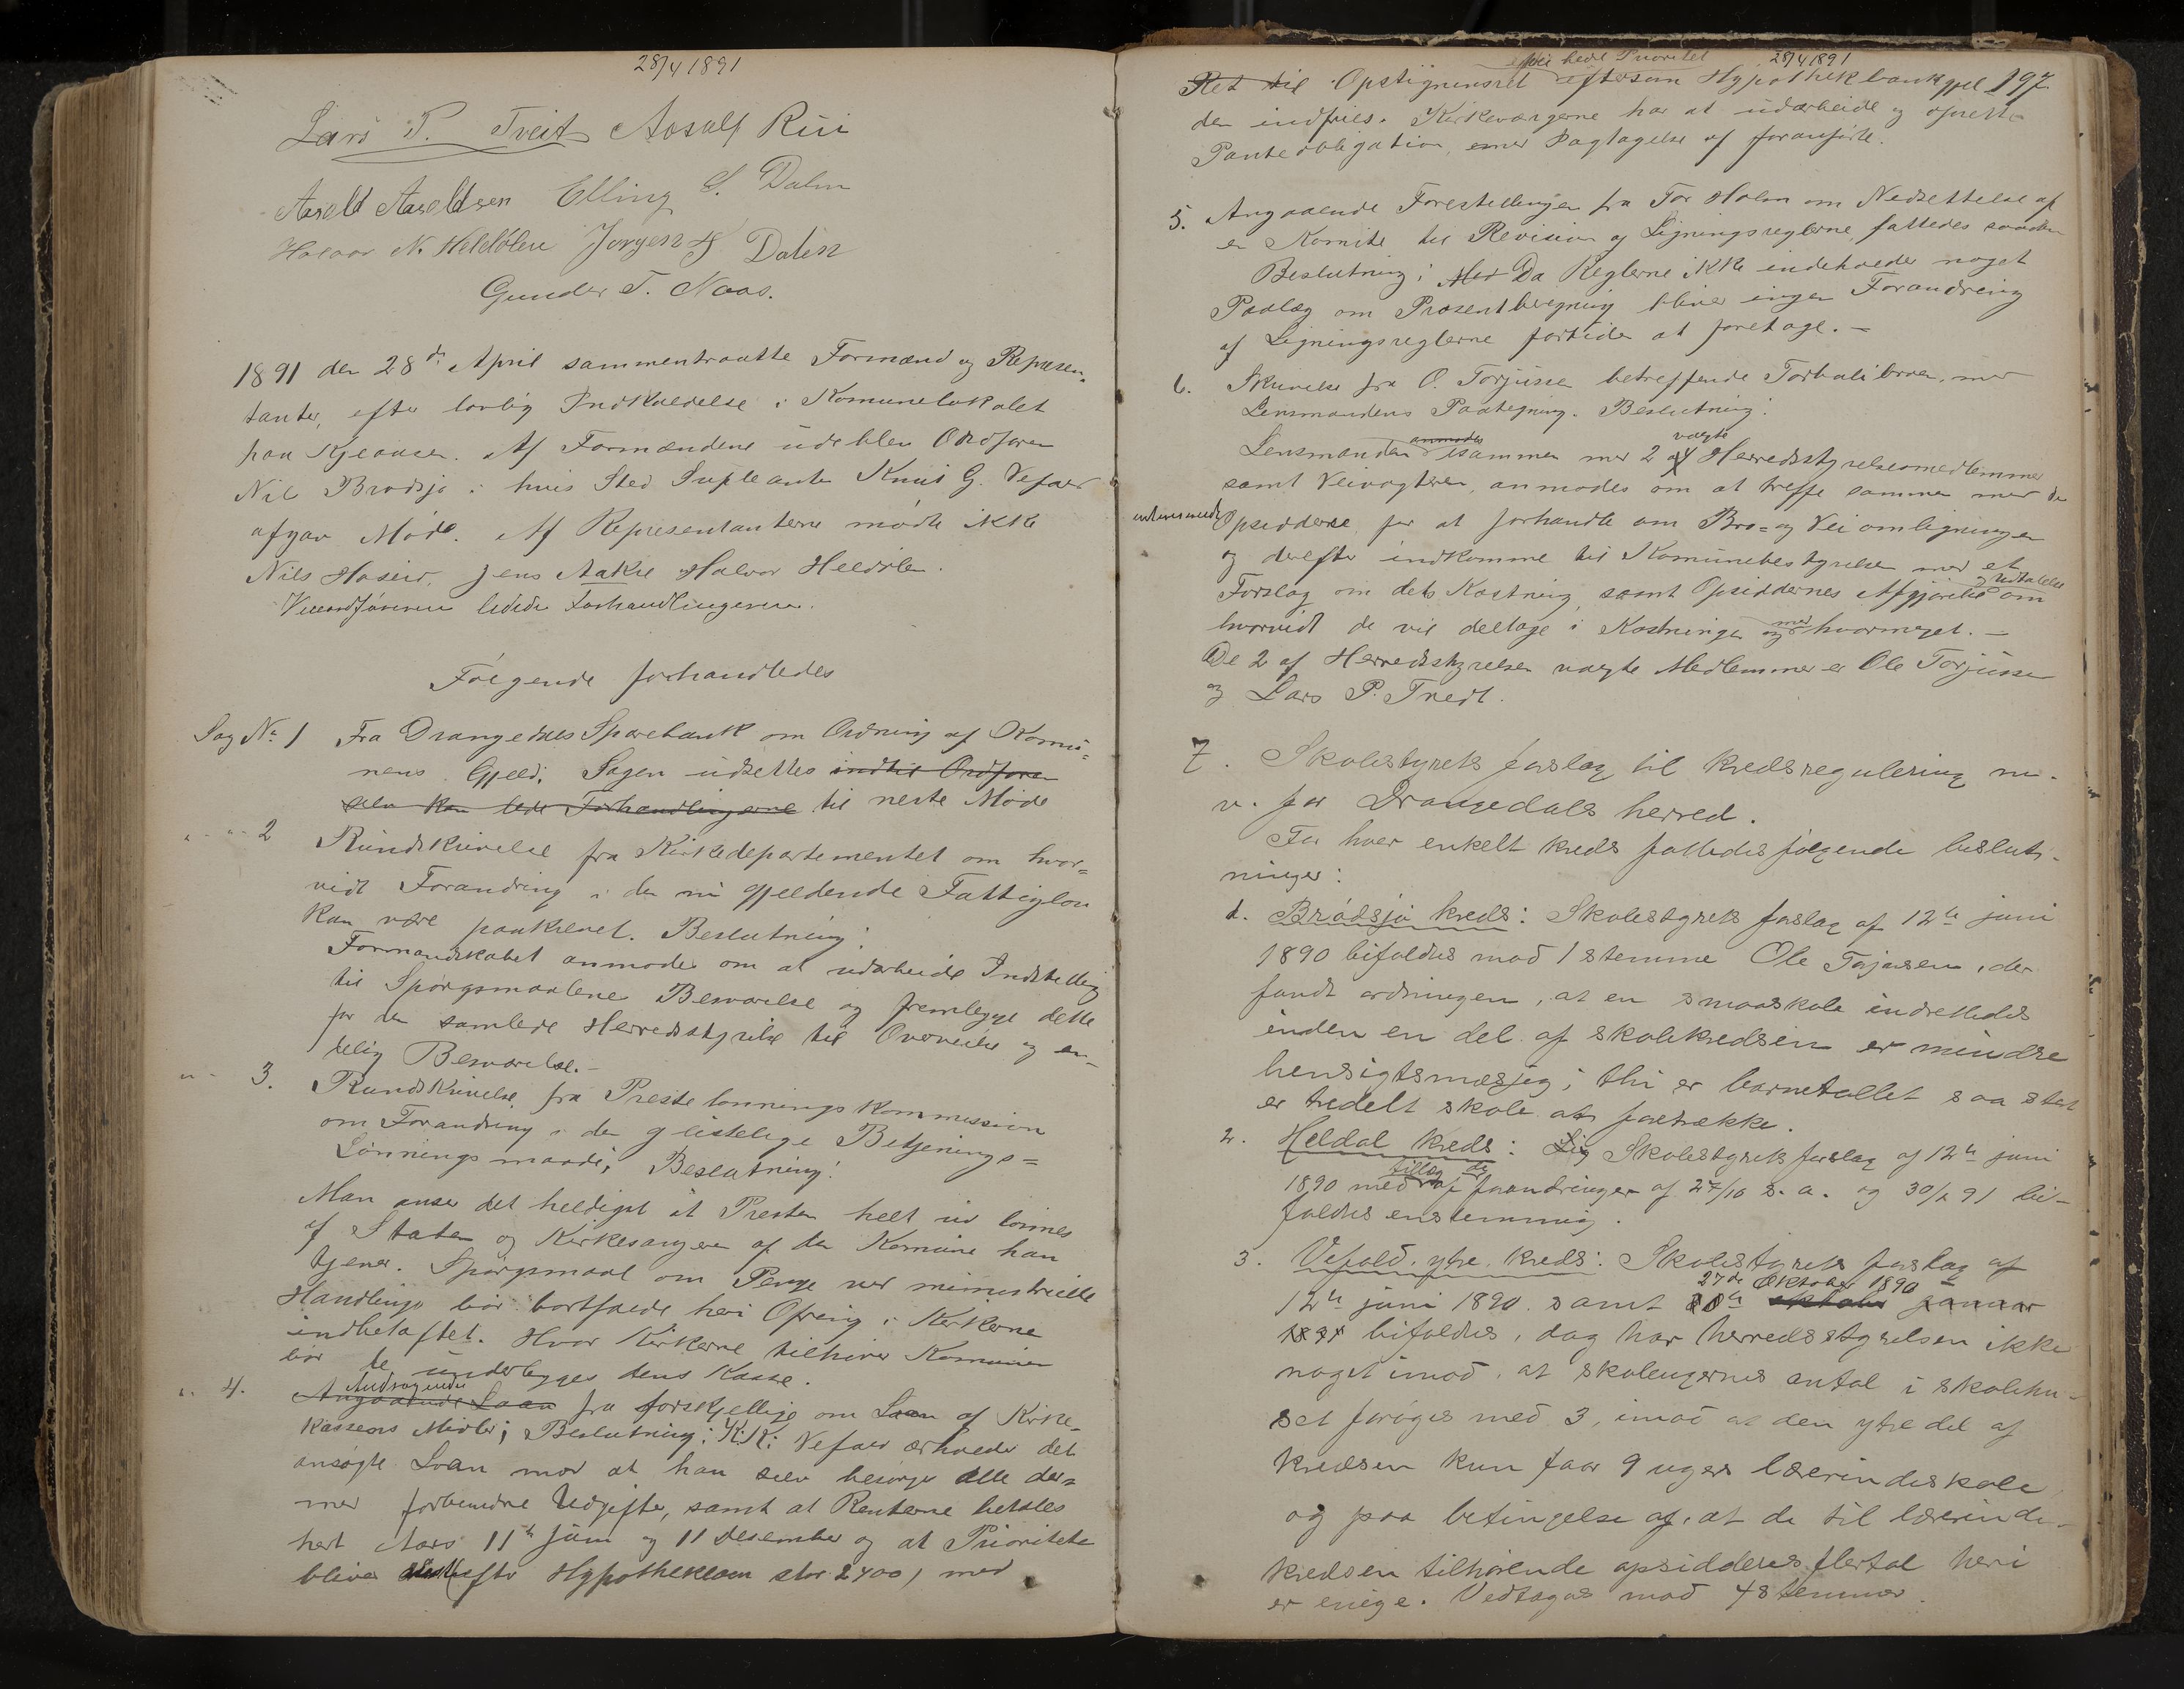 28/4 1891
Lars P. Tveit Aasulf Rui
Aasold Aasoldsen Elling S. Dalen
Halvor N. Heldölen Jörgen H Dalen
Gunder T. Naas.
1891 den 28de April sammentraadte Formænd og Repræsen-
tanter, efter lovlig Indkaldelse i Komunelokalet
paa Kjeaasen. Af Formændene udeblev Ordføren
Nils Brødsjø i hvis Sted Supleanten Knut G. Vefald
afgav Møde. Af Representanterne mødte ikke
Nils Hoseid, Jens Aakre Halvor Heldölen.
Viceordføreren ledede Forhandlingerne.
Følgende forhandledes
Sag No 1 Fra Drangedals Sparebank om Ordning af Komu-
nens Gjeld; Sagen udsettes indtil Ordføren
selv kan lede Forhandlingerne til neste Møde
" - " 2 Rundskrivelse fra Kirkedepartementet om hvor-
vidt Forandring i den nu gjeldende Fattiglov
kan være paakrevet. Beslutning:
Formandskabet anmodes om at udarbeide Indstilling
til Spørgsmaalenes Besvarelse og fremlegge dette
for den samlede Herredsstyrelse til Overveielse og en-
delig Besvarelse.-
" - 3. Rundskrivelse fra Prestelønningskommission
om Forandring i den geistelige Betjenings-
Lønningsmaade; Beslutning:
Man anser det heldigst at Presten helt ud lønnes
af Staten og Kirkesangeren af den Komune han
tjener. Spørgsmaal om Penge ved ministerielle
Handlinger bør bortfalde heri Ofring i Kirkerne
indbefattet. Hvor Kirkerne tilhører Komunen
bør de underlegges dens Kasse.
" 4. Angaaende Laan Andragender fra forskjellige om Laan af Kirke-
kassens Midler; Beslutning: K. K. Vefald erholder det
ansøgte Laan mod at han selv besørger alle der-
med forbundne Udgifter, samt at Renterne betales
hert Aars 11te Juni og 11 Desember og at Prioriteten
bliver efter Hypotheklaan stor 2400, med
28/4 1891
197
Ret til Opstigningsret eftersom Hypothekbankgjel-
den indfries. Kirkeværgerne har at udarbeide og oprette
Panteobligation, under Iagtagelse af foranførte.
5. Angaaende Forestillingen fra Tor Holm om Nedsettelse af
en Komite til Revision af Ligningsreglerne, fattedes saadan
Beslutning: Med Da Reglerne ikke indeholder noget
Paalæg om Prosentberegning bliver ingen Forandring
af Ligningsreglerne fortiden at foretage.-
6. Skrivelse fra O. Torjusen betreffende Torhalibroen, med
Lensmandens Paategning. Beslutning:
Lensmanden anmodes isammen med 2 af valgte Herredsstyrelsesmedlemmer
samt Veivogteren, anmodes om at treffe sammen med de
interesserede Opsiddere for at forhandle om Bro- og Vei omlegningen
og derefter indkomme til Komunebestyrelsen med et
Forslag om dets Kostning, samt Opsiddernes Afgjørelse og Udtalelse om
hvorvidt de vil deltage i Kostningen og med hvormeget.-
De 2 af Herredsstyrelsen valgte Medlemmer er Ole Torjusen
og Lars P. Tvedt.
7. Skolestyrets forslag til kredsregulering m.
v. for Drangedals herred.
For hver enkelt kreds fattedes følgende beslut-
ninger:
1. Brødsjø kreds: Skolestyrets forslag af 12te juni
1890 bifaldes mod 1 stemme Ole Tojusen, der
fandt ordningen, at en smaaskole indrettedes
inden en del af skolekredsen er mindre
hensigtsmæsjeg; thi er barnetallet saa stort
er tredelt skole at foretrække.
2. Heldal kreds: Lig Skolestyrets forslag af 12te juni
1890 med tillæg og forandringer af 27/10 s. a. og 30/1 91 bi-
faldes enstemmig.
3. Vefald ytre kreds: Skolestyrets forslag af
12te juni 1890 samt 30te oktober januar 27de Oktober 1890
1891 bifaldes, dog har herredsstyrelsen ikke
noget imod, at skoleugernes antal i skolehu-
set forøges med 3, imod at den ytre del af
kredsen kun faar 9 ugers lærerindeskole
og paa betingelse af, at de til lærerinde-
kredsen tilhørende opsidderes flertal heri
er enige. Vedtages mod 4 stemmer.